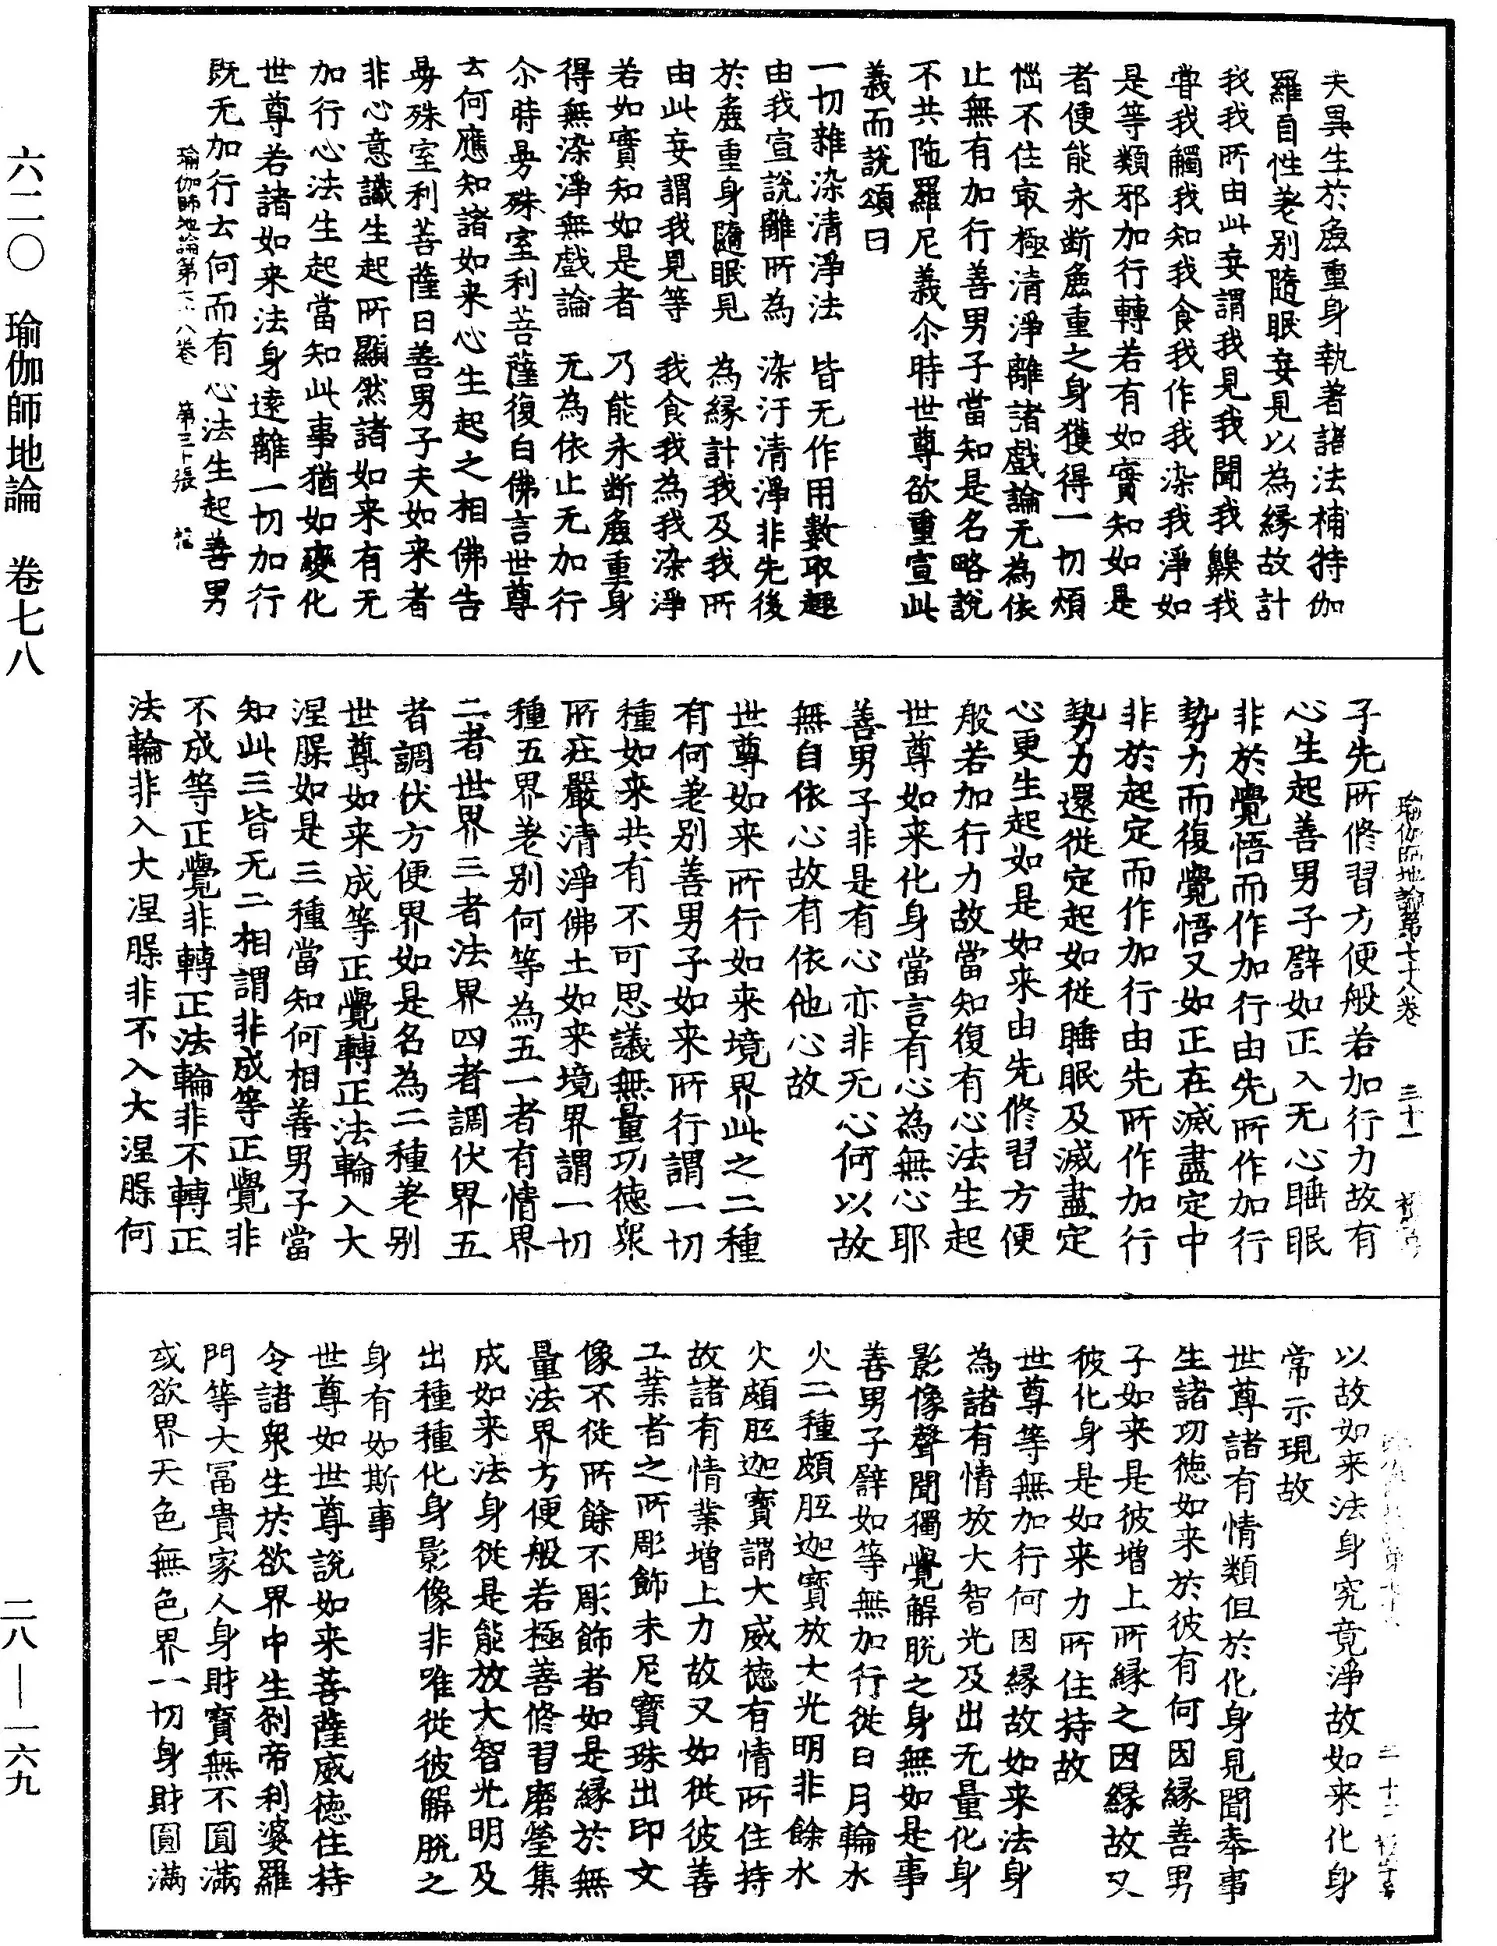 六二〇　瑜伽師地論　卷七八
二八—一六九
夫異生於麁重身執著諸法補特伽
羅自性差別隨眠妄見以為緣故計
我我所由此妄謂我見我聞我齅我
甞我觸我知我食我作我染我淨如
是等類邪加行轉若有如實知如是
者便能永断麁重之身獲得一切煩
惱不住㝡極清淨離諸戲論无為依
止無有加行善男子當知是名略說
不共陁羅尼義尒時世尊欲重宣此
義而說頌曰
一切雜染清淨法　皆无作用數取趣
由我宣說離所為　染汙清淨非先後
於麁重身隨眠見　為緣計我及我所
由此妄謂我見等　我食我為我染淨
若如實知如是者　乃能永断麁重身
得無染淨無戲論　无為依止无加行
尒時曼殊室利菩薩復白佛言世尊
云何應知諸如来心生起之相佛告
曼殊室利菩薩曰善男子夫如来者
非心意識生起所顯然諸如来有无
加行心法生起當知此事猶如變化
世尊若諸如来法身遠離一切加行
既无加行云何而有心法生起善男
瑜伽師地論第七十八卷　第三十張
子先所修習方便般若加行力故有
心生起善男子譬如正入无心睡眠
非於覺悟而作加行由先所作加行
勢力而復覺悟又如正在滅盡定中
非於起定而作加行由先所作加行
勢力還從定起如從睡眠及滅盡定
心更生起如是如来由先修習方便
般若加行力故當知復有心法生起
世尊如来化身當言有心為無心耶
善男子非是有心亦非无心何以故
無自依心故有依他心故
世尊如来所行如来境界此之二種
有何差別善男子如来所行謂一切
種如来共有不可思議無量功德衆
所莊嚴清淨佛土如来境界謂一切
種五界差別何等為五一者有情界
二者世界三者法界四者調伏界五
者調伏方便界如是名為二種差别
世尊如来成等正覺轉正法輪入大
涅槃如是三種當知何相善男子當
知此三皆无二相謂非成等正覺非
不成等正覺非轉正法輪非不轉正
法輪非入大涅槃非不入大涅槃何
瑜伽師地論第七十八卷　三十一
以故如来法身究竟淨故如来化身
常示現故
世尊諸有情類但於化身見聞奉事
生諸功德如来於彼有何因緣善男
子如来是彼增上所緣之因緣故又
彼化身是如来力所住持故
世尊等無加行何因緣故如来法身
為諸有情放大智光及出无量化身
影像聲聞獨覺解脫之身無如是事
善男子譬如等無加行從日月輪水
火二種頗胝迦寶放大光明非餘水
火頗胝迦寶謂大威德有情所住持
故諸有情業增上力故又如從彼善
工業者之所彫飾末尼寶珠出印文
像不從所餘不彫飾者如是緣於無
量法界方便般若極善修習磨瑩集
成如来法身從是能放大智光明及
出種種化身影像非唯從彼解脫之
身有如斯事
世尊如世尊說如来菩薩威德住持
令諸衆生於欲界中生剎帝利婆羅
門等大冨貴家人身財寶無不圓滿
或欲界天色無色界一切身財圓滿